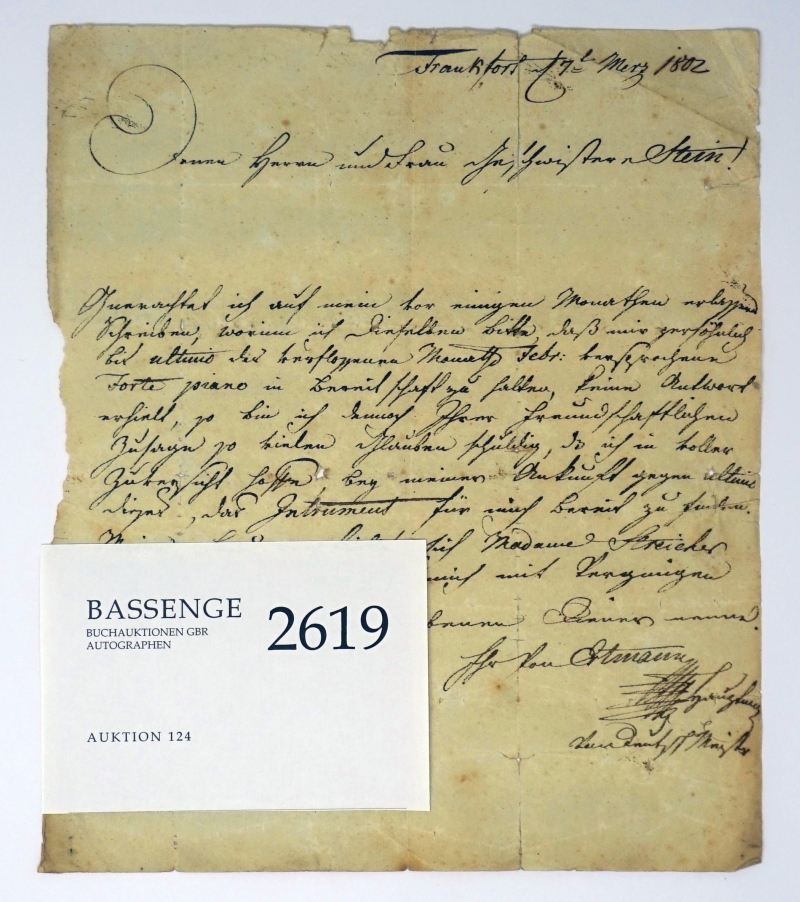 Frankfort d 7t Merz 1802
Denen Herrn und Frau Geschwistere Stein!
Ohnerachtet ich auf mein vor einigen Monathen erlassene
Schreiben, worinn ich Dieselben bitte, daß mir persöhnlich
bis ultimo des verflossenen Monaths Febr: versprochene
Forte piano in Bereitschaft zu halten, keine Antwort
erhielt, so bin ich dennoch Ihrer freundschaftlichen
Zusage so vielen Glauben schuldig, da ich in voller
Zuversicht hoffe bey meiner Ankunft gegen ultimo
dieses, das Instrument für mich bereit zu finden.
sich Madame Streicher
mich mit Vergnügen
benen Diener nenne.
Ihr von Ertmann
Hauptmann
von Deutsch Meister
BASSENGE
BUCHAUKTIONEN GBR
AUTOGRAPHEN
2619
AUKTION 124